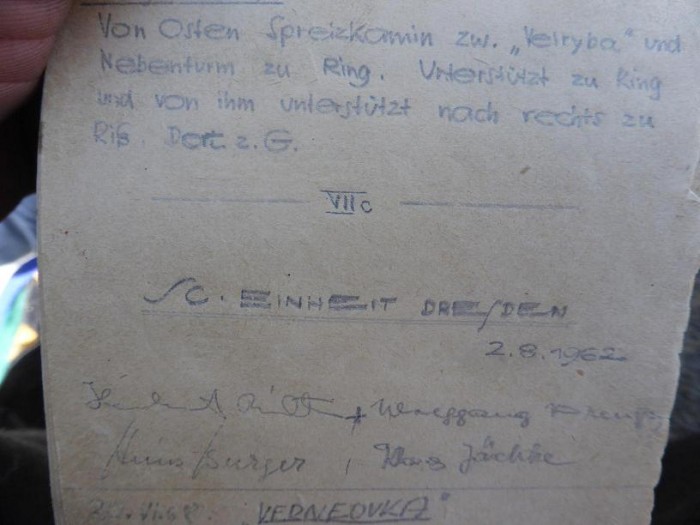 Von Osten Spreizkamin zw. „Velryba" und
Nebenturm zu Ring. Unterstützt zu Ring
und von ihm unterstützt nach rechts zu
Riß. Dort z. G.
VIIc
SC. EINHEIT DRESDEN
2.8.1962
Wolfgang
Burger, Klaus Jäckke
"VERNEOVKA"